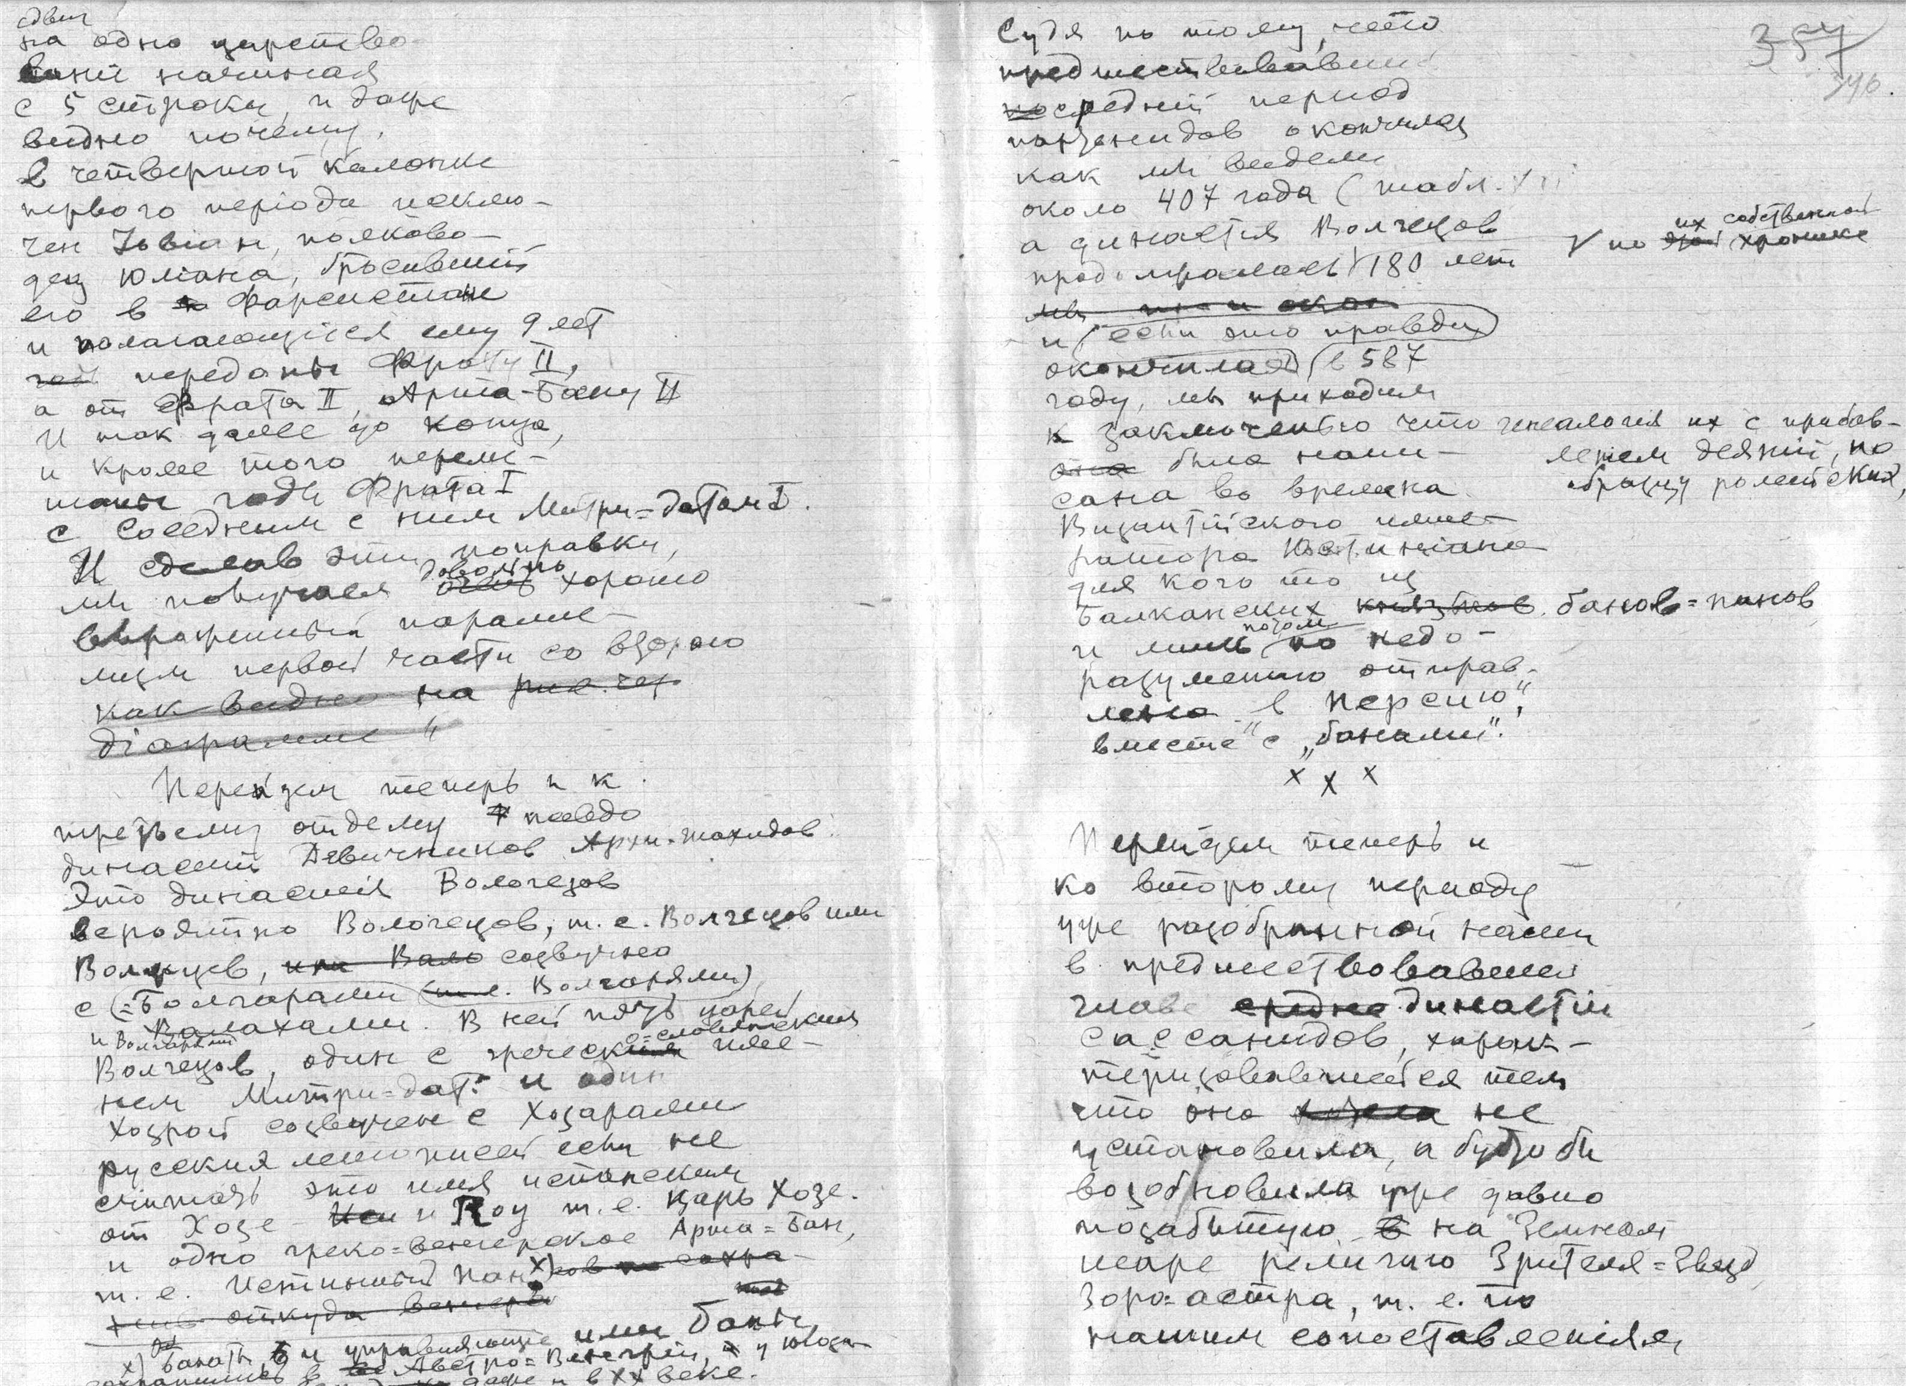 сдвиг
на одно царствова-
ний начиная
с 5 строки, и даже
видно почему,
в четвертой колонке
первого періода исклю-
чен Іовіан, полково-
дец Юліана, бросивший
его в Фарсистане
и полагающіеся ему 9 лет
переданы Фрату II,
а от Фрата II, Арта-Бану II
и так далее до конца,
и кроме того переме-
шаны годы Фрата I
с соседним с ним Митри=датом I.
И сделав эти поправки,
мы получаем довольно хорошо
выраженный паралле-
лизм первой части со второю
как видно на
діаграмме
Перейдем теперь и к
третьему отделу псевдо
династии Девичников
Это династія Вологезов
вероятно Вологезов, т. е. Волгецов или
Волжцев, или Вало созвучно
с (=Болгарами (т.е. Волгарями)
и Валахами. В ней пять царей
Волгарями
Волгецов, один с греческим име-
=словянским
нем Митри=дат и один
Хозрой созвучен с Хозарами
русских летописей если не
считать это имя испанским
от Хозе и Roy т. е. Царь Хозе.
и одно греко=венгерское Арта=Бан,
т. е. Истинный пан x)
откуда венгеры
x) Банаты и управляющие ими баны
сохранились в Австро=Венгрии, и у югосл
даже и в XX веке.
357
346.
Судя по тому, что
предшествовавший
средний период
парзанидов окончился
как мы видели
около 407 года (табл.
а династія Волгецов
продолжалась V 180 лет
V по их собственной хронике
и (если это правда)
окончилась в 587
году, мы приходим
к заключенію что генеалогія их с прибав-
леніем деяний, по
образцу ромейских,
она была напи-
сана во времена
Византійского импе-
ратора Юстиніана
для кого то из
Балканских князьков банов=панов,
и лишь потом по недо-
разумению отправ-
лена в "Персию",
вместе с „банами".
x x x
Перейдем теперь и
ко второму периоду
уже разобранной нами
в предшествовавшей
главе средне династіи
Сассанидов, харак-
теризовавшейся тем
что она не
установила, а будто бы
возобновила уже давно
позабытую на Земном
шаре религию Зрителя=Звезд
Зоро=астра, т. е. по
нашим сопоставлениям,